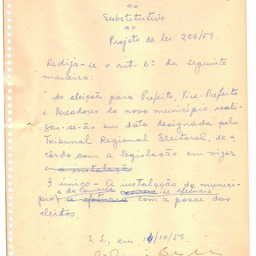 ao
Substitutivo
ao
Projeto de lei 206/59.
Redija-se o art. 6º da seguinte
maneira:
"As eleições para Prefeito, Vice-Prefeito
e Vereadores do novo município reali-
zar-se-ão em data designada pelo
Tribunal Regional Eleitoral, de a-
côrdo com a legislação em vigor
e a instalação
§ único - A instalação do municí-
pio e da Câmara
com a posse dos
eleitos.
S. S., em /10/59.